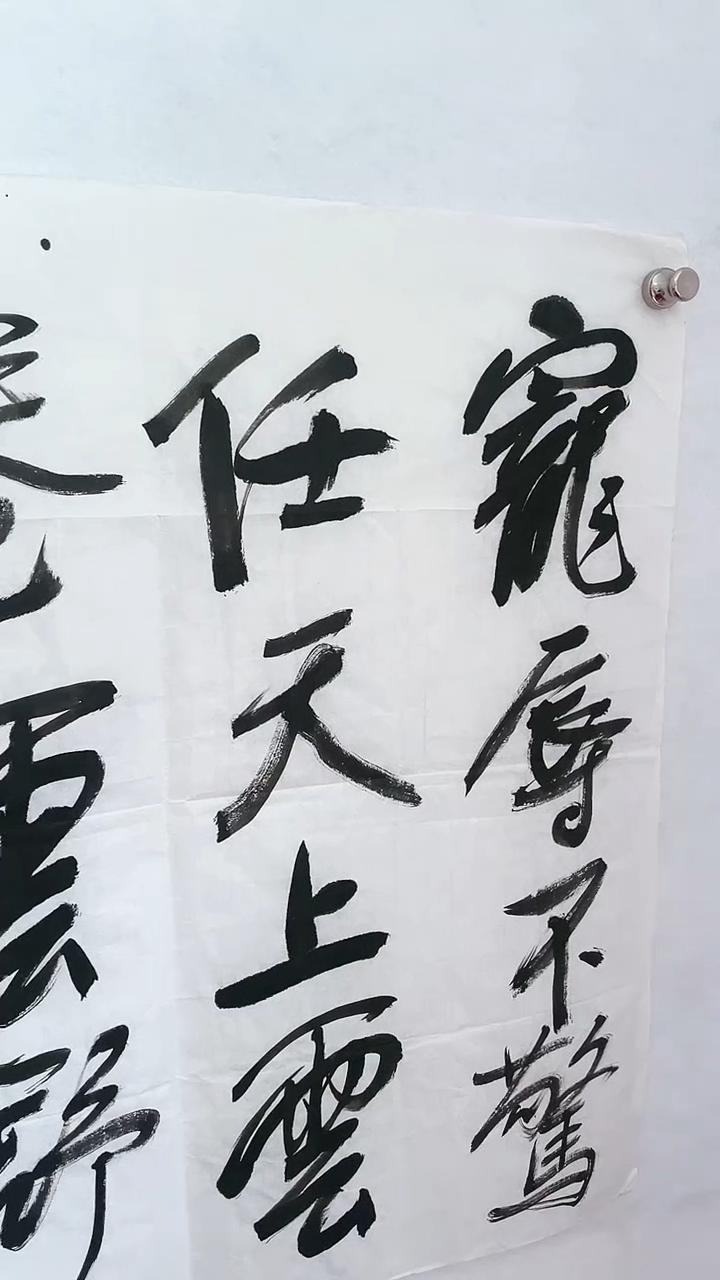 寵辱不驚
任天上雲
雲舒